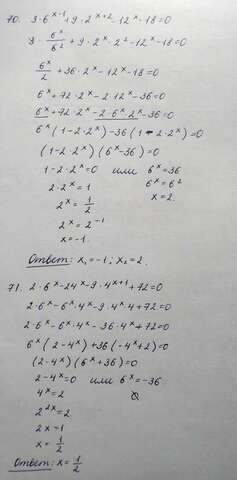 70. 3·6^{x-1}+9·2^{x+2}-12^x-18=0
3·\frac{6^x}{6^2}+9·2^x·2^2-12^x-18=0
\frac{6^x}{2}+36·2^x-12^x-18=0
6^x+72·2^x-2·12^x-36=0
6^x+72·2^x-2·6^x·2^x-36=0
6^x(1-2·2^x)-36(1-2·2^x)=0
(1-2·2^x)(6^x-36)=0
1-2·2^x=0 или 6^x=36
2·2^x=1 6^x=6^2
2^x=\frac{1}{2} x=2.
2^x=2^{-1}
x=-1.
Ответ: x₁=-1, x₂=2.
71. 2·6^x-24^x-9·4^{x+1}+72=0
2·6^x-6^x·4^x-9·4^x·4+72=0
2·6^x-6^x·4^x-36·4^x+72=0
6^x(2-4^x)+36(-4^x+2)=0
(2-4^x)(6^x+36)=0
2-4^x=0 или 6^x=-36
4^x=2 ∅
2^{2x}=2
2x=1
x=\frac{1}{2}
Ответ: x=\frac{1}{2}